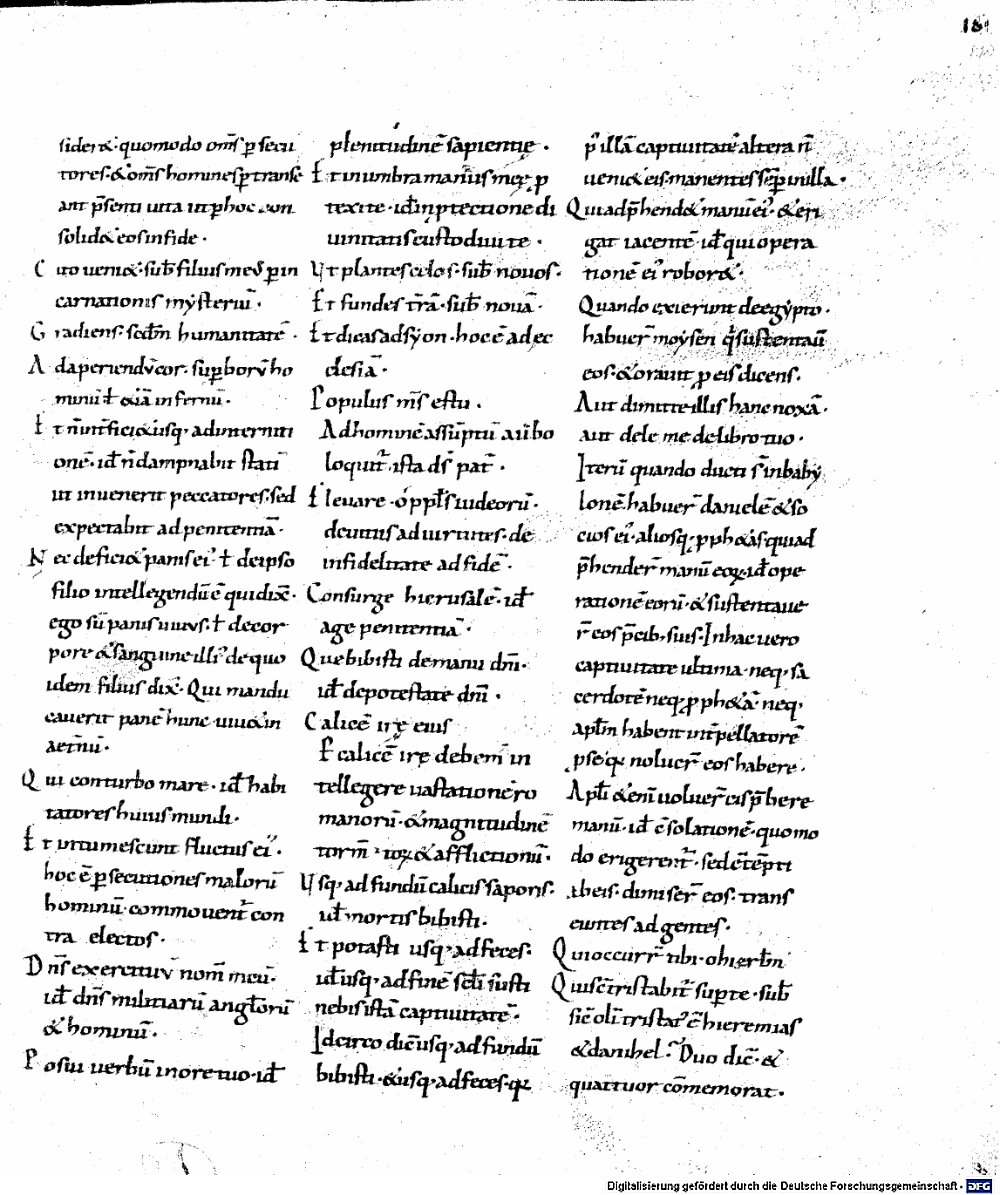 181
sider&·quomodo om̅s p̱ secu
tores·&om̅s hominesp̱transe
ant p̅senti uita utphoc con
solid&eosinfide·
Cito ueni&·sub̅ filius meus p̱ in
carnationis mẏsteriu̅·
Gradiens·secd̅m humanitate̅·
Adaperiendv̅cor·sup̱borv̅ho
minu̅ ł &ia̅ infernu̅·
Et n̅int̅fici&usq·adinterniti
one̅·id̅ n̅dampnabit stati
ut inuenerit peccatores·sed
expectabit adpenitentia̅·
Nec defici&panisei ł deipso
filio intellegendu̅e̅ quidix&·
ego su̅ panisuiuus·ł decor
pore &sanguine illi de quo
idem filius dix&·Qui mandu
cauerit pane̅ hunc uiu&in
aet̅nu̅·
Qui conturbo mare·id̅ habi
tatores huius mundi·
Et intumescunt fluctus ei·
hoc e̅ p̱ secutiones maloru̅
hominu̅ commouent̅ con
tra electos·
Dn̅s exercituv̅ nom̅ meu̅·
id̅ dn̅s militiaru̅ angłoru̅
&hominu̅·
Posui uerbu̅ inore tuo·id̅
plenitudine̅ sapientię·
Et inumbra manus meę p
texi te·id̅ inptectione di
uinitatiscustodiui te·
Vt plantes cęlos·sub̅ nouos·
Et fundes tr̅a̅·sub̅ noua̅·
Et dicasadsẏon·hoc e̅ ad ec
clesia̅·
Populus m̅s estu·
Adhomine̅assu̅ptu̅ aubo
loquit̅·ista ds̅ pat̅·
Eleuare·o ppl̅s iudeoru̅·
deuitiisaduirtutes·de
infidelitate adfide̅·
Consurge hierusale̅·id̅
age penitentia̅·
Quebibisti demanu dni̅·
id̅ depotestate dni̅·
Calice̅ irę eius
P calice̅ irę debem̅ in
tellegere uastatione̅ro
manoru̅·&magnitudine̅
torm̅toꝝ&afflictionu̅·
Vsq·ad fundu̅calicis saporis·
id̅ mortis bibisti·
Et potasti usq·adfeces·
id̅usq·adfine̅ scl̅i susti
nebisista̅ captiuitate̅·
Idcirco dic&usq·adfundu̅
bibisti·&usq·adfeces·qꝫ
p̅ illa̅ captiuitate̅ altera n̅
ueni&eis·manentessep̱inilla·
Quiadp̅hend&manu̅ei·&eri
gat iacente̅ id̅ quiopera
tione̅ ei robor&·
Quando exierunt deegẏpto·
habuer̅ moẏsen q̅sustentau̅
eos·&orauit p eis dicens·
Aut dimitte illis hanc noxa̅·
aut dele me delibro tuo·
Iteru̅ quando ducti s̅inbabẏ
lone̅·habuer̅ daniele̅&so
cios ei·aliosq·pph&as·quiad
p̅hender̅ manu̅ eoꝝ·id̅ ope
ratione̅ eoru̅·&sustentaue
r̅ eos p̅cib· suis·Inhac uero
captiuitate ultima·neq·sa
cerdote̅ neq·pph&a̅·neq·
apłm habent int̅pellatore̅
p se·qꝫ noluer̅ eos habere·
Apłi &eni̅ uoluer̅ eis p̅bere
manu̅·id̅ c̅solatione̅·quomo
do erigerent̅·sede̅te̅pti
abeis·dimiser̅ eos·trans
euntes ad gentes·
Quioccurr̅ tibi·ohierl̅m
Quisc̅tristabit̅ sup̱te·sub̅
sic̅ oli̅ tristat e̅ hieremias
&danihel·Duo dic̅·&
quattuor co̅memorat·
Digitalisierung gefördert durch die Deutsche Forschungsgemeinschaft · DFG